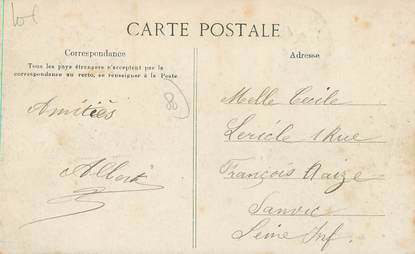 CARTE POSTALE
Correspondance
Tous les pays étrangers n'acceptent par la
correspondance au recto, se renseigner à la Poste
Amitiés
Albert
8
Adresse
Melle Cécile
Lericle 1 Rue
François
Sanvic
Seine Inf.